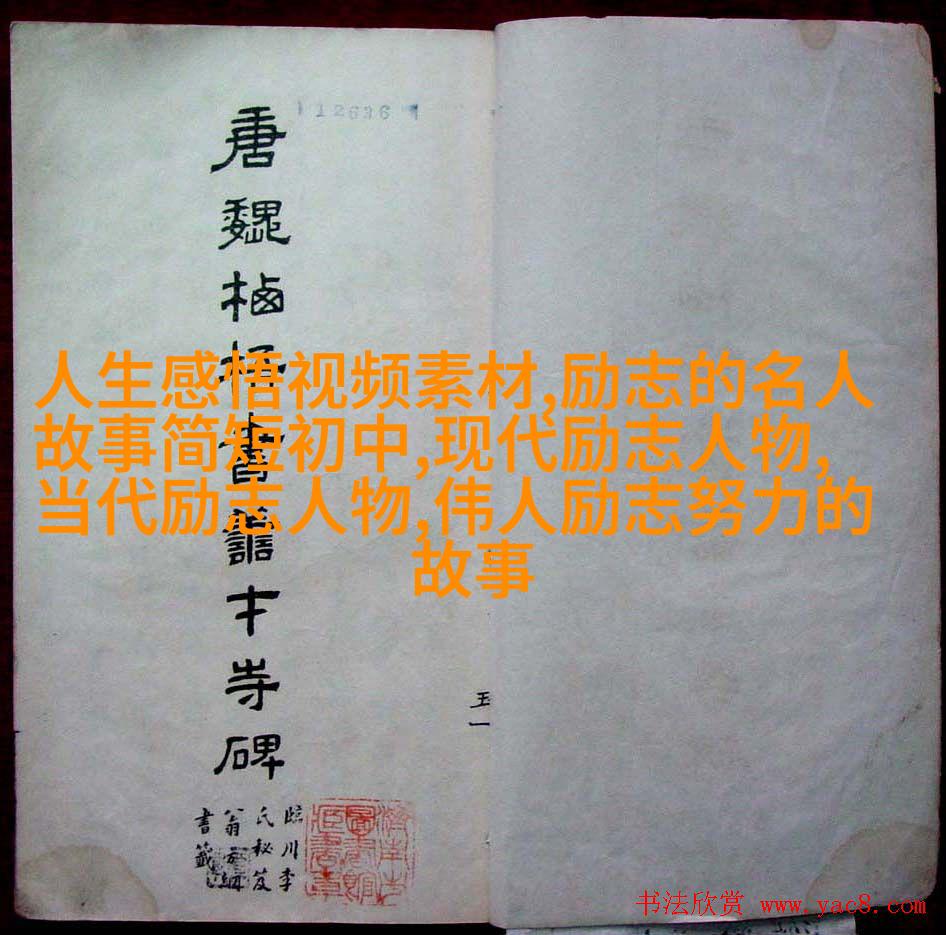 人生感悟视频素材,励志的名人
故事简短初中,现代励志人物,
当代励志人物,伟人励志努力的
故事
12636
唐魏栖梧書善才寺碑
臨川李
氏秘笈
翁方綱
書籤
五一
书法欣赏 www.yac8.com